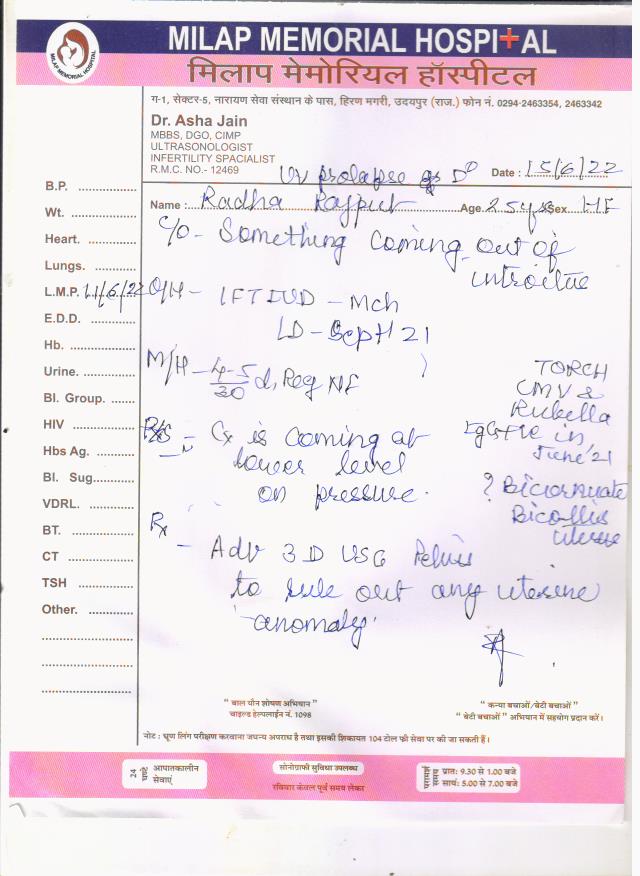 MILAP MEMORIAL HOSPITAL
MILAP MEMORIAL HOSPITAL
मिलाप मेमोरियल हॉस्पीटल
ग-1, सेक्टर-5, नारायण सेवा संस्थान के पास, हिरण मगरी, उदयपुर (राज.) फोन नं. 0294-2463354, 2463342
Dr. Asha Jain
MBBS, DGO, CIMP
ULTRASONOLOGIST
INFERTILITY SPACIALIST
R.M.C. NO.- 12469
UV prolapse
Date : 15/6/22
Name : Radha Rajput Age 25 yrs Sex
B.P.
Wt.
Heart.
Lungs.
L.M.P. 11/6/22
E.D.D.
Hb.
Urine.
Bl. Group.
HIV
Hbs Ag.
Bl. Sug.
VDRL.
BT.
CT
TSH
Other.
C/o - Something coming out of
O/H - 1 FTIUD - Mch
LD - Sept 21
M/H - 4-5/30 d, Reg NF
TORCH
CMV &
Rubella
IgG +ve in
June 21
Cx is coming at
lower level
on pressure.
? Bicornuate
Bicollis
Rx
- Adv 3D USG Pelvis
to rule out any uterine
anomaly.
" बाल यौन शोषण अभियान "
चाइल्ड हेल्पलाईन नं. 1098
" कन्या बचाओं/बेटी बचाओं "
" बेटी बचाओं " अभियान में सहयोग प्रदान करें।
नोट : भ्रूण लिंग परीक्षण करवाना जघन्य अपराध है तथा इसकी शिकायत 104 टोल फ्री सेवा पर की जा सकती हैं।
24 घण्टे आपातकालीन सेवाएं
सोनोग्राफी सुविधा उपलब्ध
रविवार केवल पूर्व समय लेकर
परामर्श समय
प्रात: 9.30 से 1.00 बजे
सायं: 5.00 से 7.00 बजे